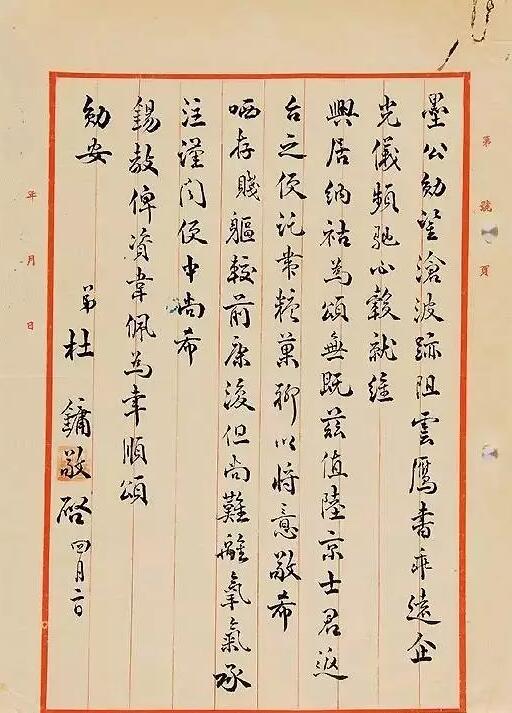 第號頁
墨公勛鑒滄波跡阻雲鴈書乖遠企
光儀頻馳心轂就維
興居納祜為頌無既茲值陸京士君返
台之便託帶糉菓聊以將意敬希
哂存賤軀較前康復但尚難離氧氣承
注謹聞便中尚希
錫教俾資韋佩為幸順頌
勛安
弟杜鏞敬啓四月二日
年月日